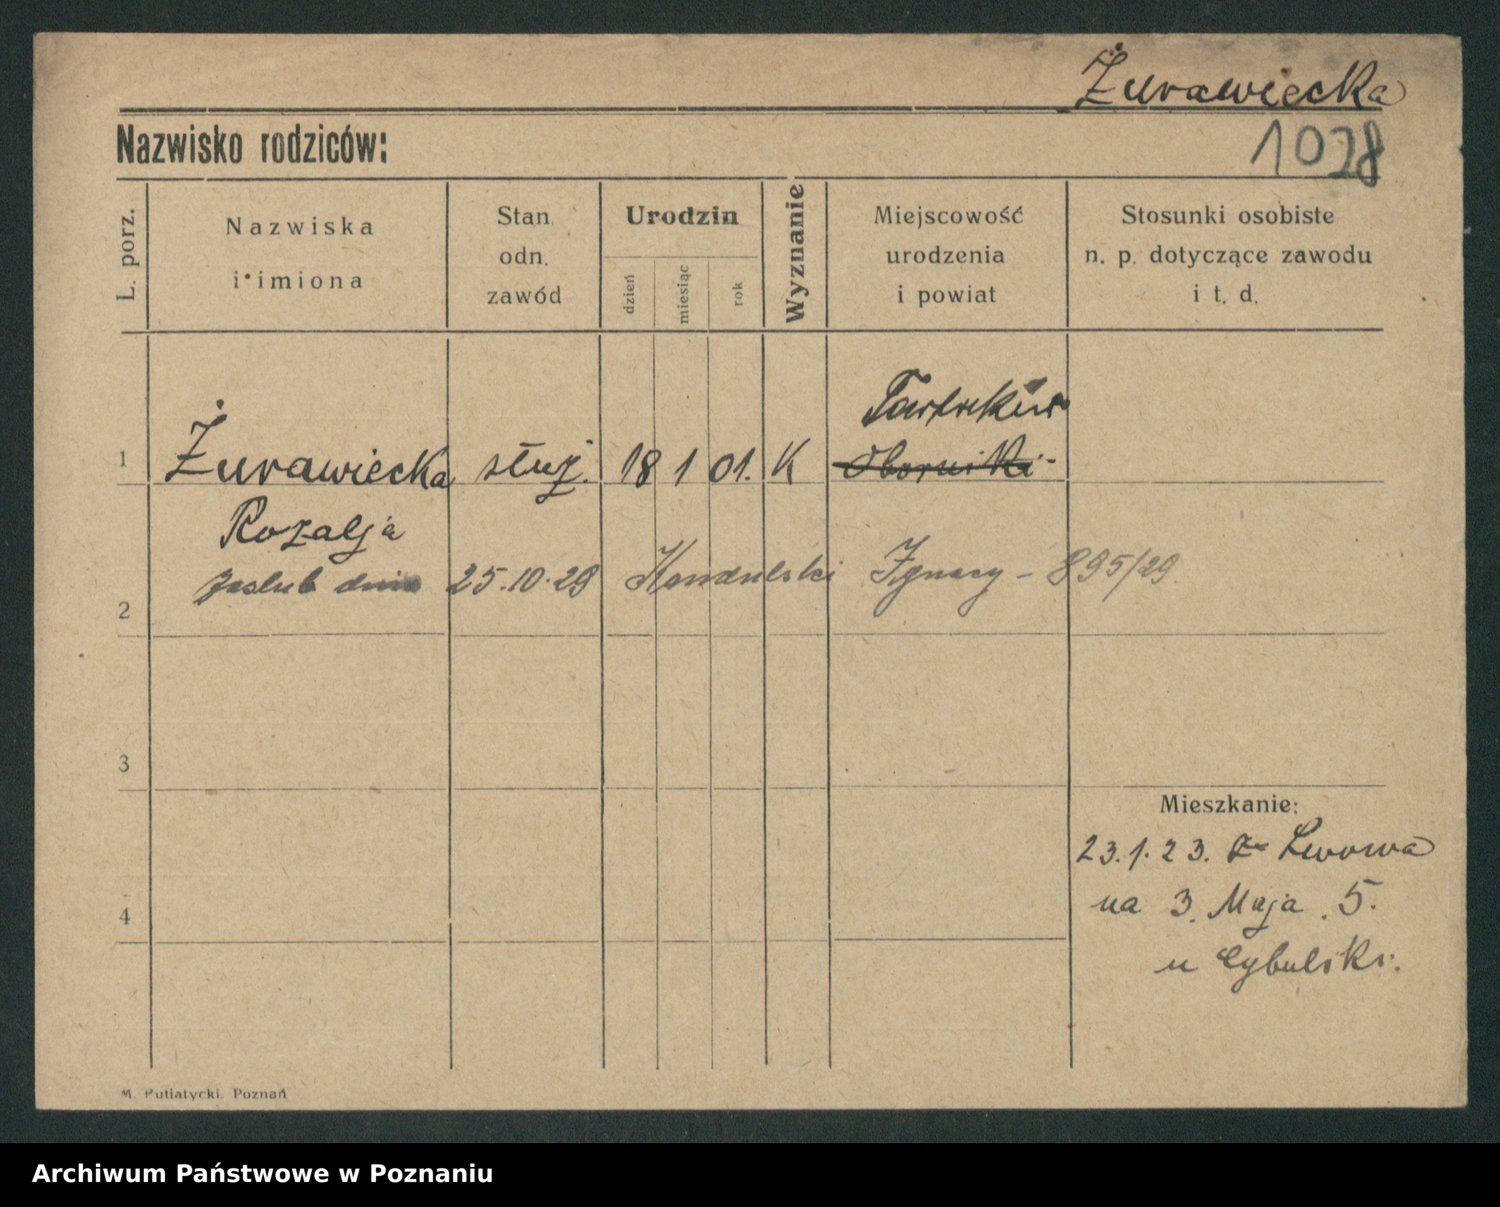 Żurawiecka
Nazwisko rodziców:
1028
L. porz.
Nazwiska
i imiona
Stan
odn.
zawód
Urodzin
dzień
miesiąc
rok
Wyznanie
Miejscowość
urodzenia
i powiat
Stosunki osobiste
n. p. dotyczące zawodu
i t. d.
1 Żurawiecka służ. 18 1 01. K Oborniki
Rozalja
2 zaślub dnia 25.10.29 Kondulski Ignacy - 895/29
3
Mieszkanie:
23.1.23. Ze Lwowa
4 na 3. Maja. 5.
u Cybulski.
M. Putiatycki. Poznań
Archiwum Państwowe w Poznaniu